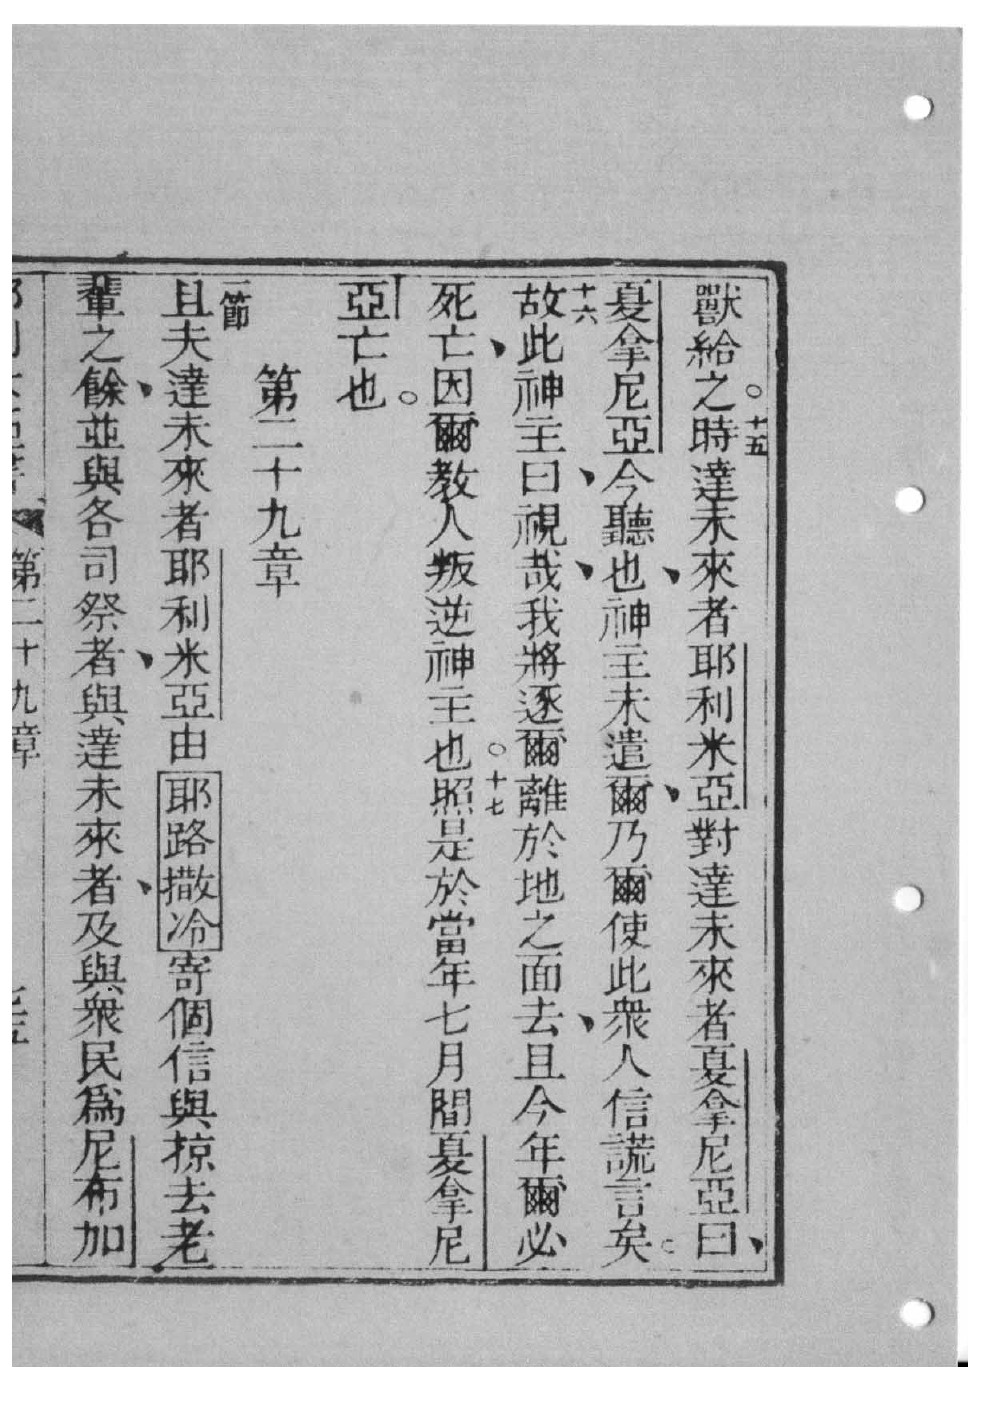 獸給之。十五時達未來者耶利米亞對達未來者夏拿尼亞曰、
夏拿尼亞今聽也、神主未遣爾、乃爾使此衆人信謊言矣。
十六故此神主曰、視哉、我將逐爾離於地之面去、且今年爾必
死亡、因爾教人叛逆神主也。十七照是於當年七月間夏拿尼
亞亡也。
第二十九章
一節且夫達未來者耶利米亞由耶路撒冷寄個信與掠去老
輩之餘、並與各司祭者、與達未來者、及與衆民爲尼布加
第二十九章